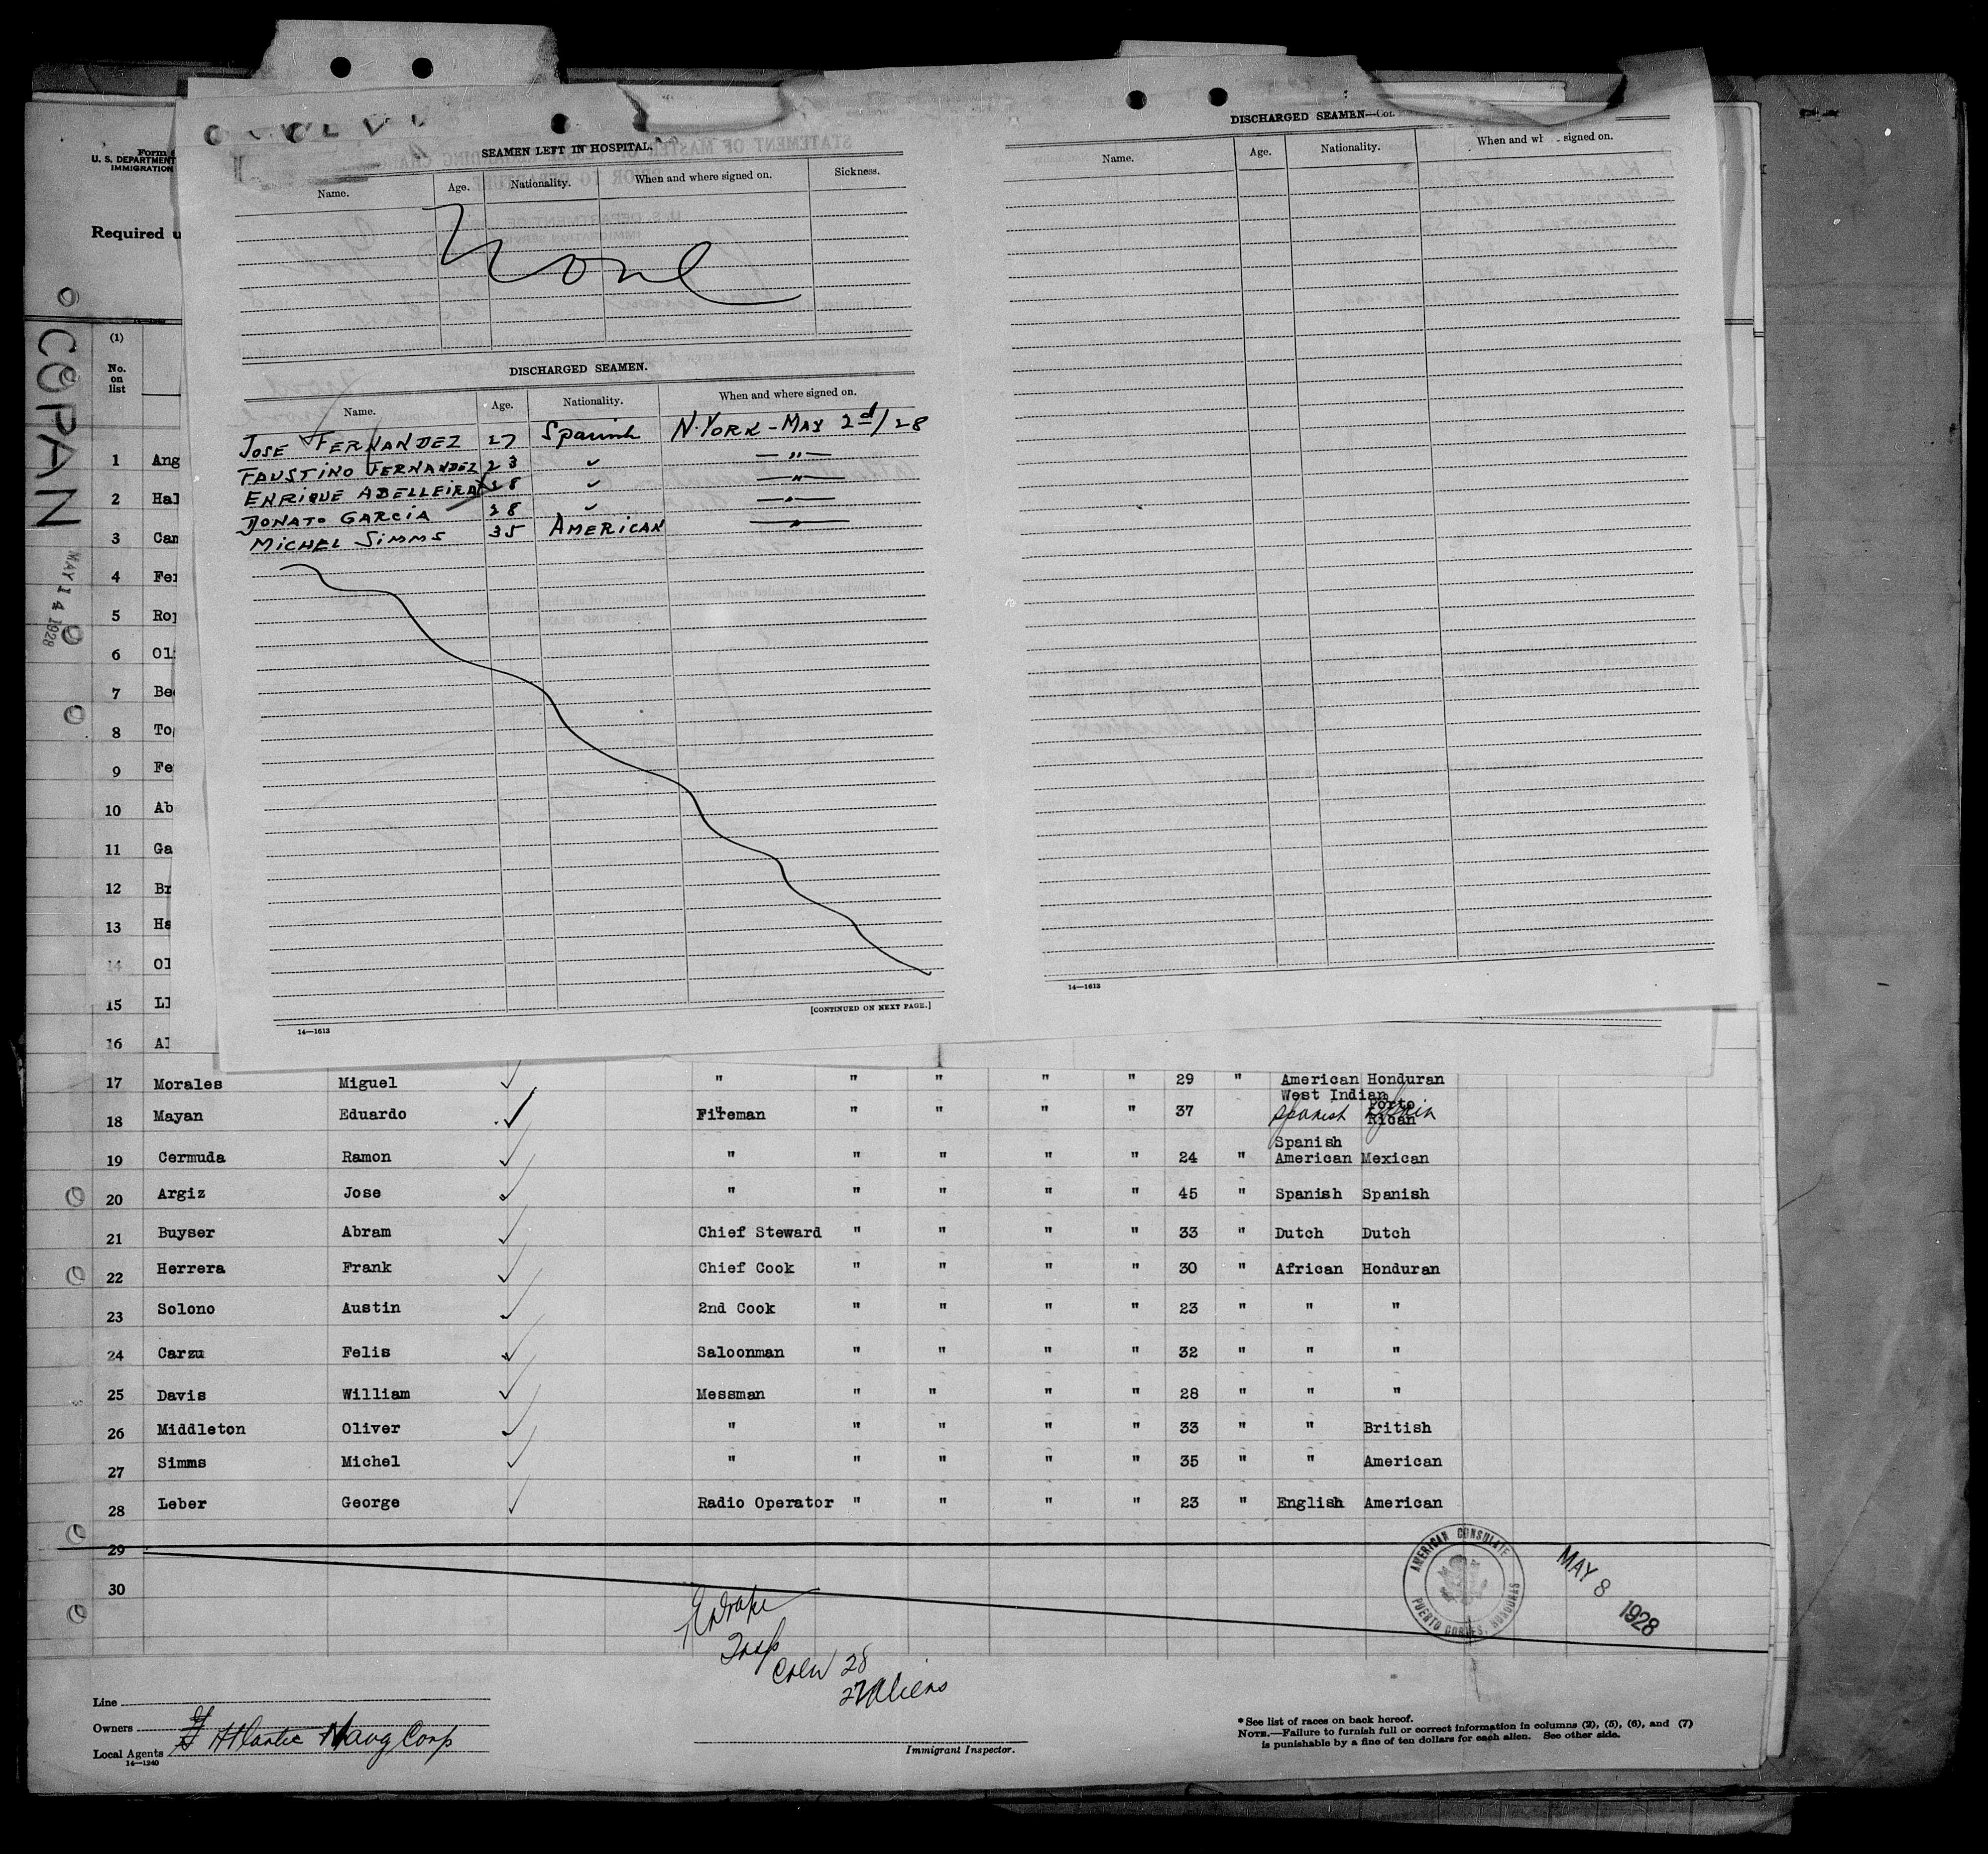 Form
U. S. DEPARTMENT
IMMIGRATION
Required u
COPAN
MAY 14 1928
SEAMEN LEFT IN HOSPITAL.
Name. Age. Nationality. When and where signed on. Sickness.
None
DISCHARGED SEAMEN.
Name. Age. Nationality. When and where signed on.
JOSE FERNANDEZ 27 Spanish N. YORK - MAY 2d/28
FAUSTINO FERNANDEZ 23 " — " —
ENRIQUE ABELLEIRA 28 " — " —
DONATO GARCIA 28 " — " —
MICHEL SIMMS 35 AMERICAN — " —
[CONTINUED ON NEXT PAGE.]
14—1613
DISCHARGED SEAMEN—Con.
Name. Age. Nationality. When and wh signed on.
14—1613
(1)
No. on list
1 Ang
2 Hal
3 Cam
4 Fer
5 Rop
6 Oli
7 Bec
8 To
9 Fe
10 Ab
11 Ga
12 Br
13 Ha
14 Ol
15 Ll
16 Al
17 Morales Miguel " " " " " 29 " American Honduran
18 Mayan Eduardo Fireman " " " " 37 West Indian Spanish Porto Rican
19 Cermuda Ramon " " " " " 24 " Spanish American Mexican
20 Argiz Jose " " " " " 45 " Spanish Spanish
21 Buyser Abram Chief Steward " " " " 33 " Dutch Dutch
22 Herrera Frank Chief Cook " " " " 30 " African Honduran
23 Solono Austin 2nd Cook " " " " 23 " " "
24 Carzu Felis Saloonman " " " " 32 " " "
25 Davis William Messman " " " " 28 " " "
26 Middleton Oliver " " " " " 33 " " British
27 Simms Michel " " " " " 35 " " American
28 Leber George Radio Operator " " " " 23 " English American
29
30
AMERICAN CONSULATE
PUERTO CORTES, HONDURAS
MAY 8 1928
Drake
Insp
Crew 28
27 Aliens
Line
Owners
Local Agents Atlantic Navg Corp
14—1240
Immigrant Inspector.
*See list of races on back hereof.
NOTE.—Failure to furnish full or correct information in columns (2), (5), (6), and (7)
is punishable by a fine of ten dollars for each alien. See other side.